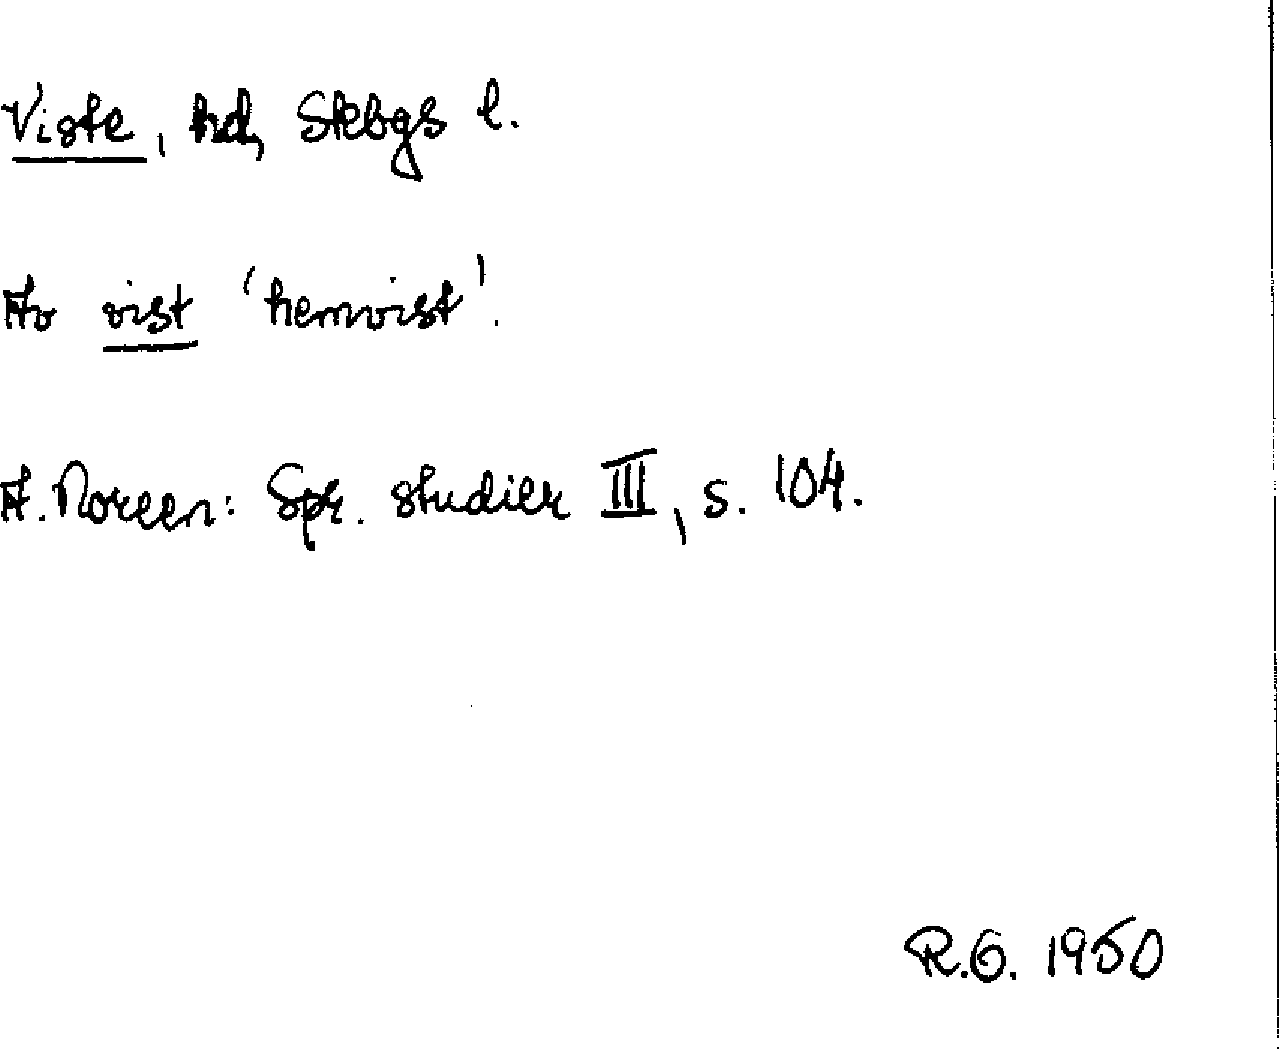 Viste, hd, Skbgs l.
Av vist 'hemvist'.
A. Noreen: Spr. studier III, s. 104.
R.G. 1950